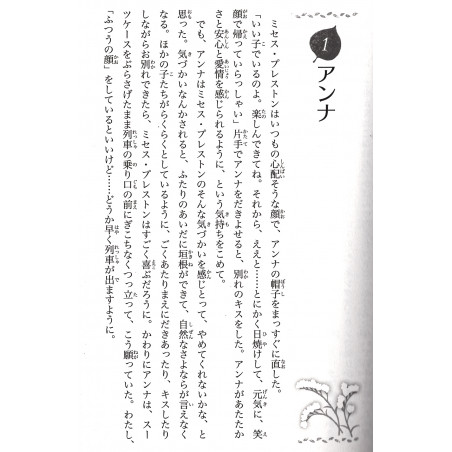 1
アンナ
ミセス・プレストンはいつもの心配そうな顔で、アンナの帽子をまっすぐに直した。
「いい子でいるのよ。楽しんできてね。それから、ええと……とにかく日焼けして、元気に、笑
顔で帰っていらっしゃい」片手でアンナをだきよせると、別れのキスをした。アンナがあたたか
さと安心と愛情を感じられるように、という気持ちをこめて。
でも、アンナはミセス・プレストンのそんな気づかいを感じとって、やめてくれないかな、と
思った。気づかいなんかされると、ふたりのあいだに垣根ができて、自然なさよならが言えなく
なる。ほかの子たちがらくらくとしているように、ごくあたりまえにだきあったり、キスしたり
しながらお別れできたら、ミセス・プレストンはすごく喜ぶだろうに。かわりにアンナは、スー
ツケースをぶらさげたまま列車の乗り口の前にぎこちなくつっ立って、こう願っていた。わたし、
「ふつうの顔」をしているといいけど……どうか早く列車が出ますように。